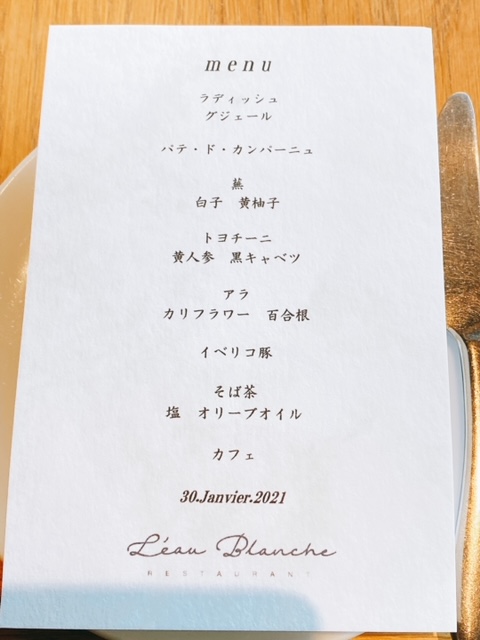 menu
ラディッシュ
グジェール
パテ・ド・カンパーニュ
蕪
白子　黄柚子
トヨチーニ
黄人参　黒キャベツ
アラ
カリフラワー　百合根
イベリコ豚
そば茶
塩　オリーブオイル
カフェ
30.Janvier.2021
L'éau Blanche
RESTAURANT